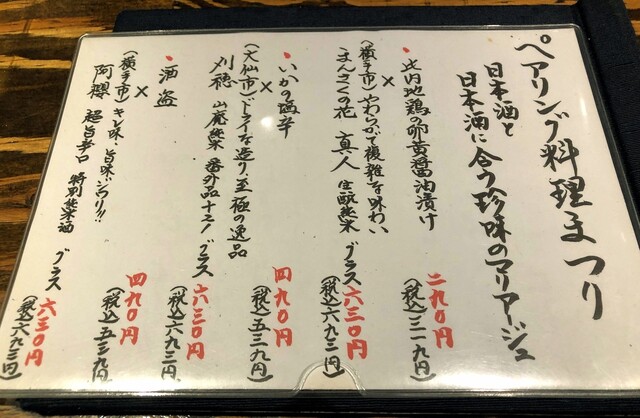 ペアリング料理まつり
日本酒と
日本酒に合う珍味のマリアージュ
・比内地鶏の卵黄醤油漬け 二九〇円
(税込)三一九円
×
(横手市)やわらかで複雑な味わい
まんさくの花 真人 生酛純米 グラス六三〇円
(税込)六九三円
・いかの塩辛 四九〇円
(税込)五三九円
×
(大仙市)ドライな造り、至極の逸品
刈穂 山廃純米 番外品+21 グラス六三〇円
(税込)六九三円
・酒盗 四九〇円
(税込)五三九円
×
(横手市)キレ味、旨味ジワリ!!
阿櫻 超旨辛口 特別純米酒 グラス六三〇円
(税込)六九三円